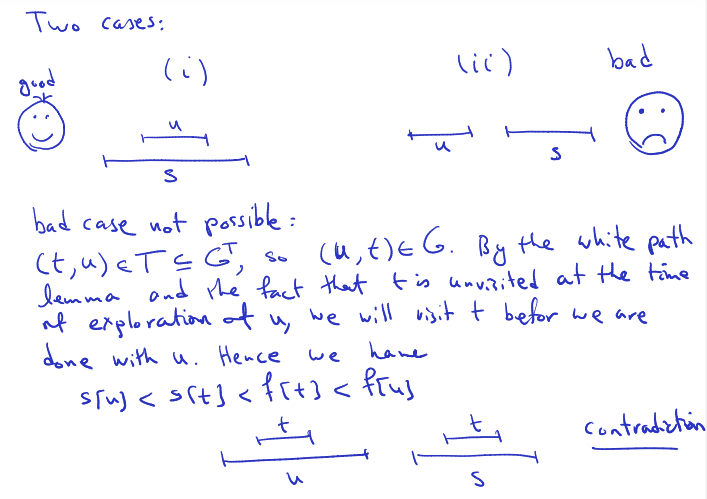 Two cases:
good (i) (ii) bad
u
s
u s
bad case not possible:
(t,u) ∈ T ⊆ Gᵀ, so (u,t) ∈ G. By the white path
lemma and the fact that t is unvisited at the time
of exploration of u, we will visit t befor we are
done with u. Hence we have
s[u] < s[t] < f[t] < f[u]
t t contradiction
u s